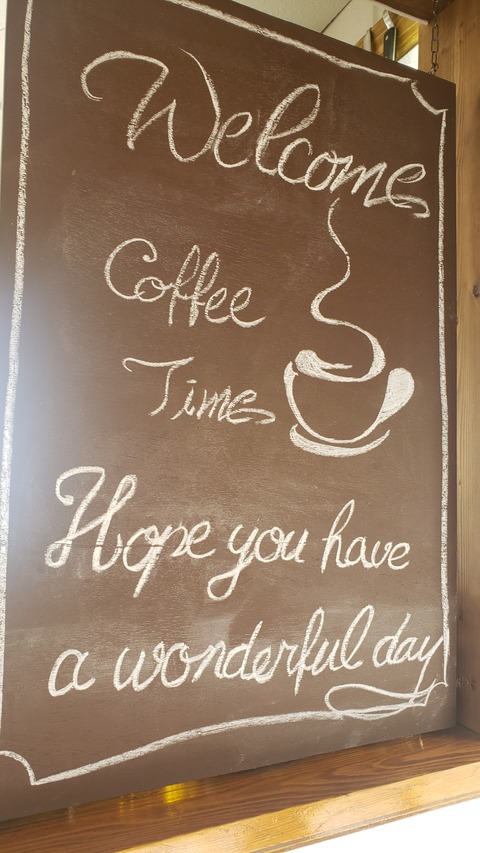 Welcome
Coffee
Time
Hope you have
a wonderful day